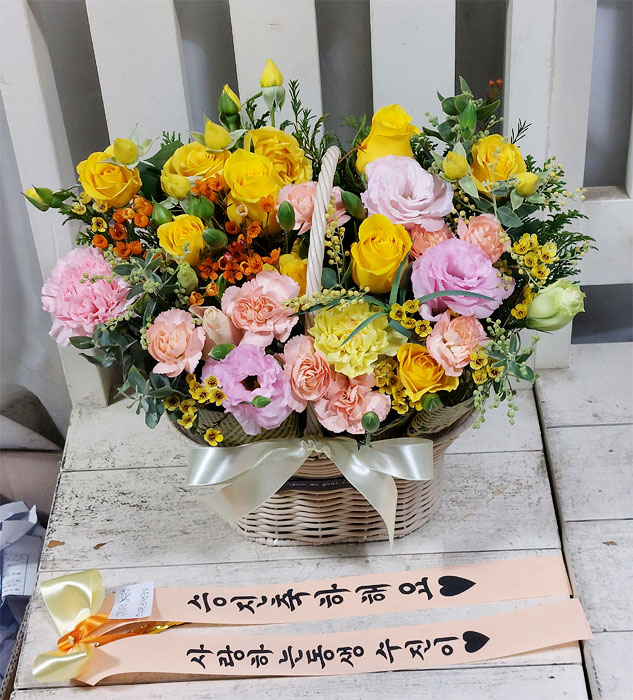 승진축하해요♥
사랑하는동생수진이♥